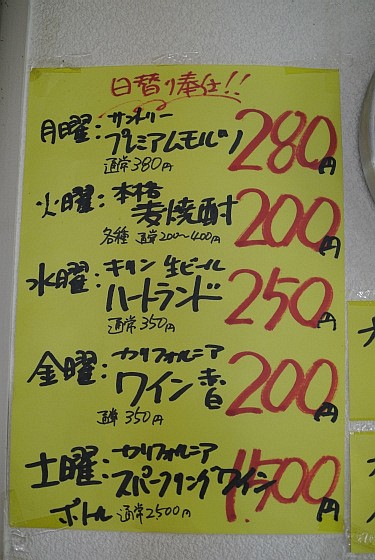 日替り奉仕!!
月曜: サントリー
プレミアムモルツ 280円
通常380円
火曜: 本格
麦焼酎 200円
各種 通常200〜400円
水曜: キリン 生ビール
ハートランド 250円
通常350円
金曜: カリフォルニア
ワイン 赤白 200円
通常350円
土曜: カリフォルニア
スパークリングワイン 1,500円
ボトル 通常2500円